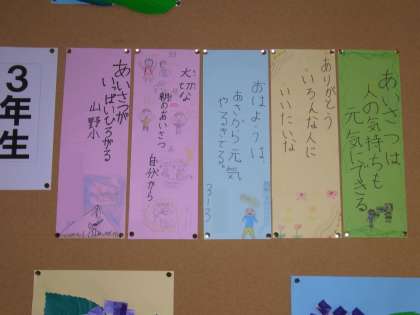 3年生
あいさつが
いっぱいひろがる
山野小
大切な
朝のあいさつ
自分から
おはようは、
あさから元気
やるきでる。
3-3
ありがとう
いろんな人に
いいたいな
あいさつは
人の気持ちも
元気にできる